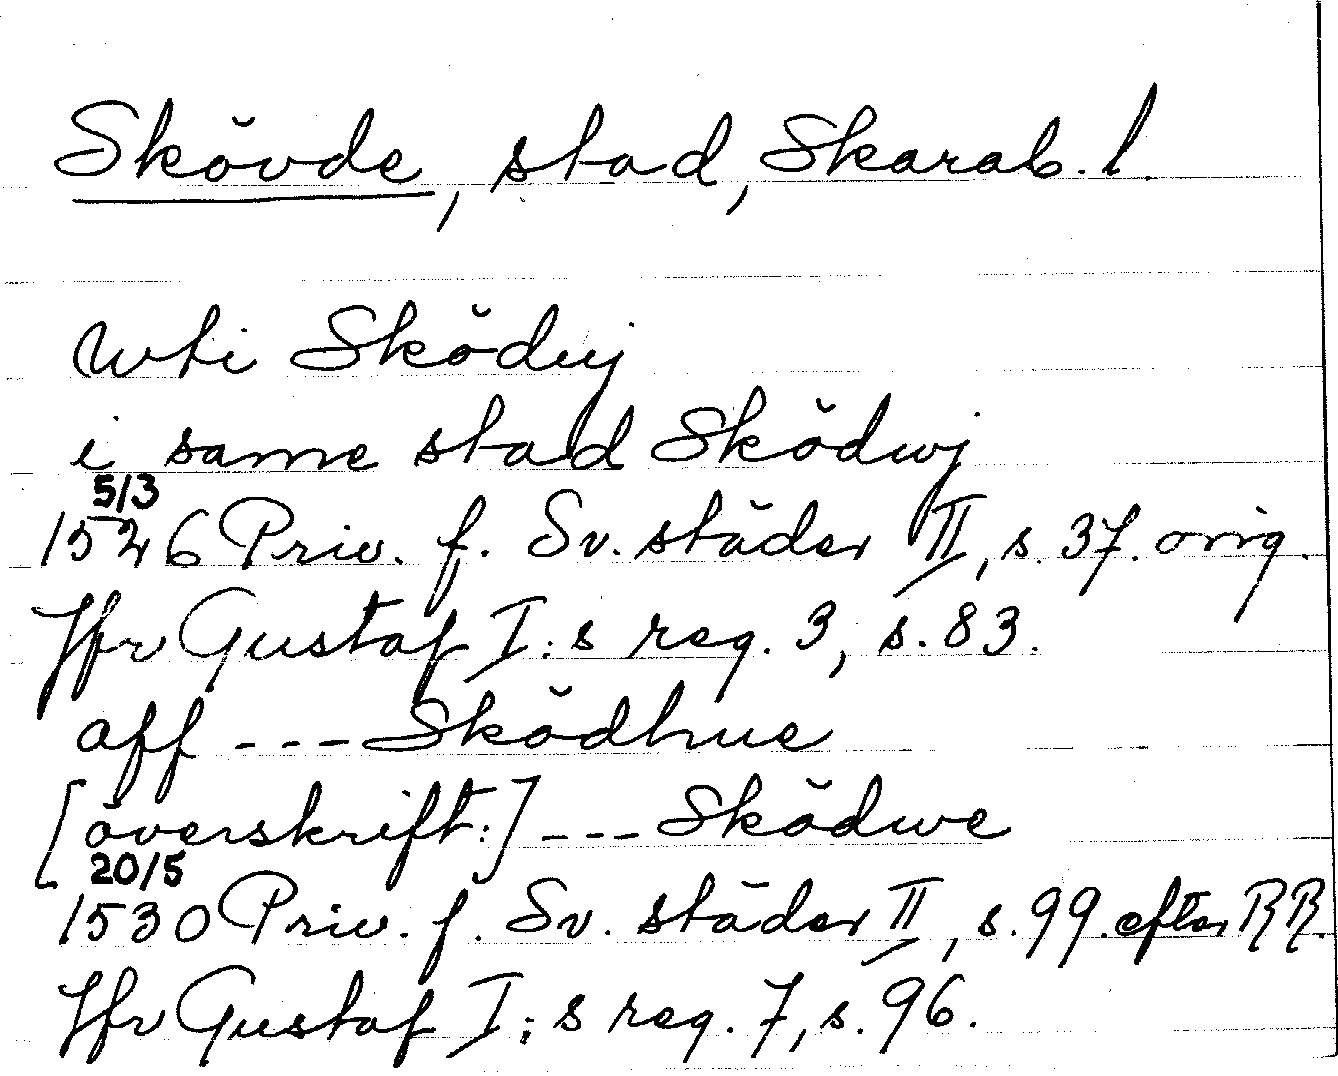 Skövde, stad, Skarab. l.
wti Sköduj
i same stad Sködwj
5/3
1526 Priv. f. Sv. städer II, s. 37. orig.
Jfr Gustaf I:s reg. 3, s. 83.
aff --- Sködhue
[överskrift:] --- Sködwe
20/5
1530 Priv. f. Sv. städer II, s. 99. efter RR.
Jfr Gustaf I:s reg. 7, s. 96.